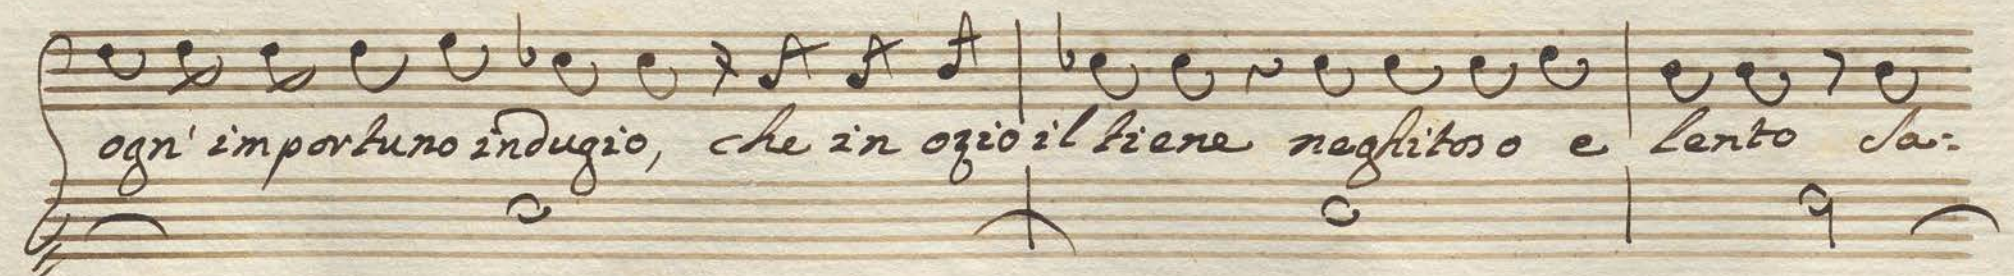 ogn' importuno indugio, che in ozio il tiene neghitoso e lento sa-